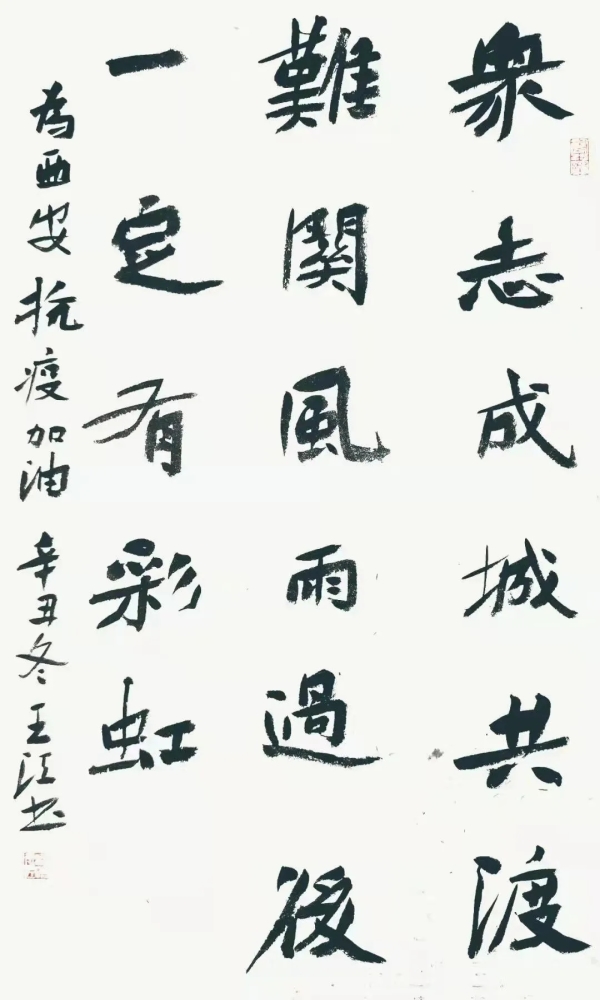 衆志成城共渡
難関風雨過後
一定有彩虹
為西安抗疫加油 辛丑冬 王江书